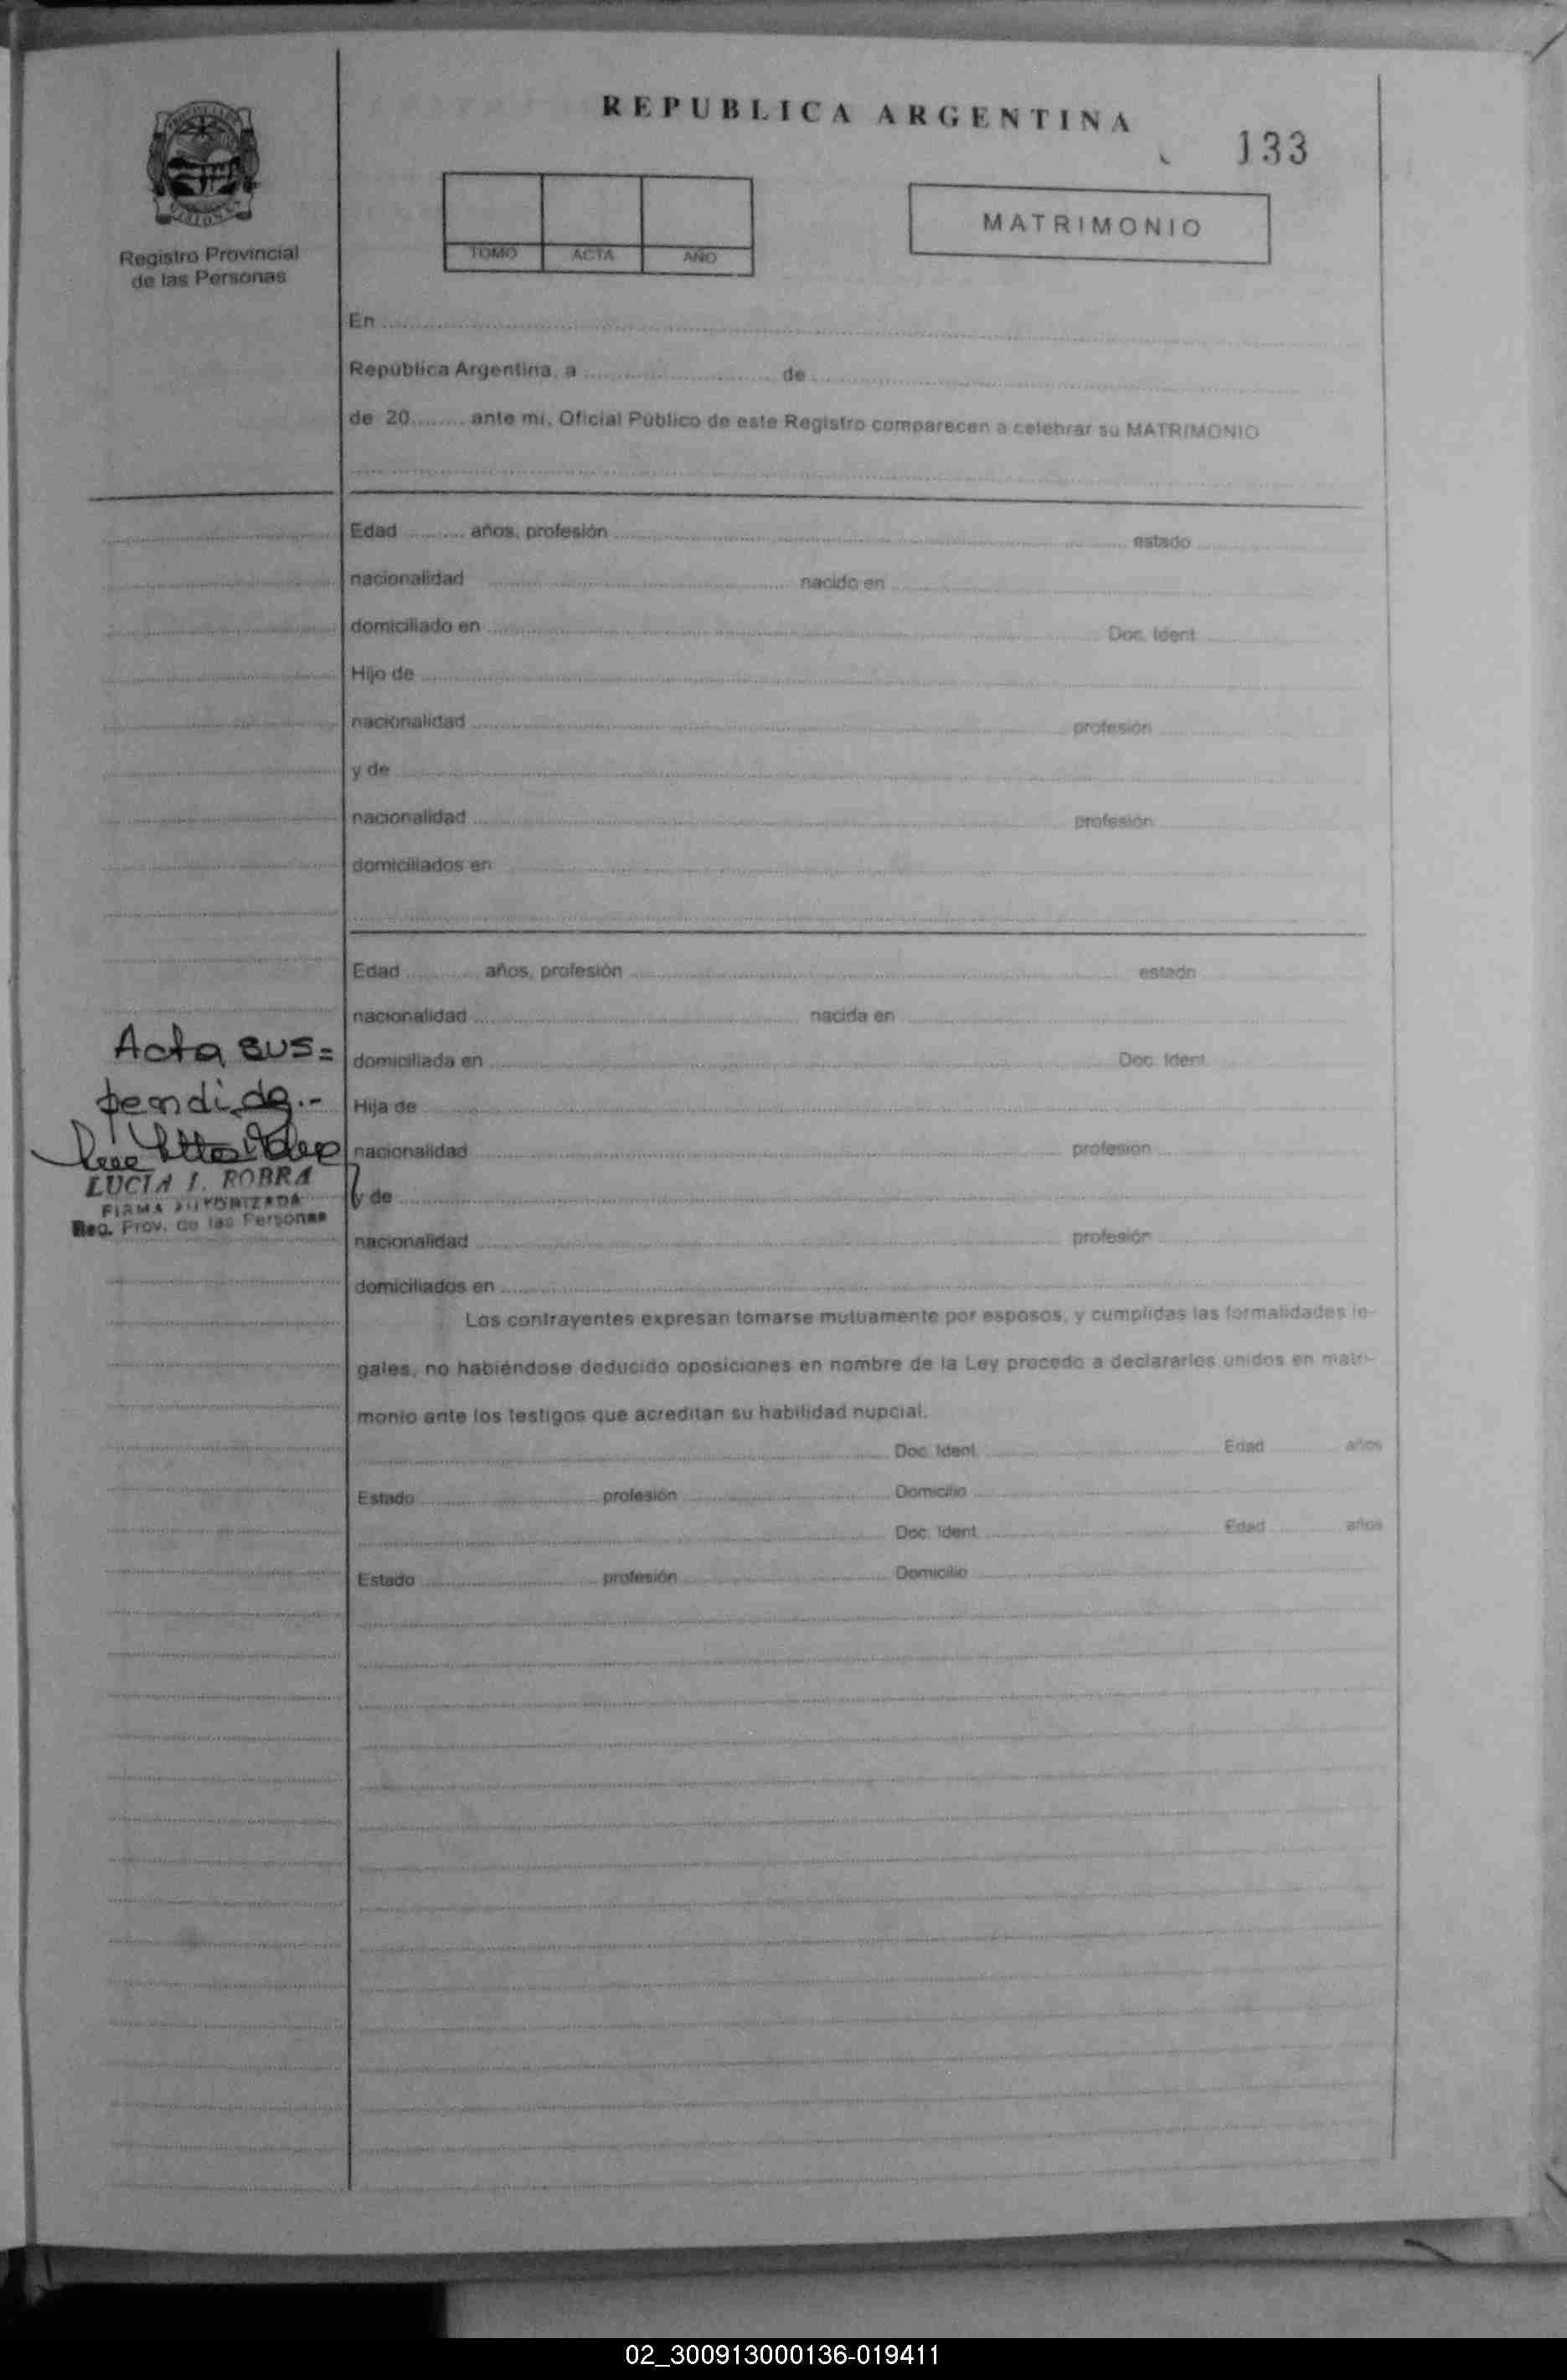 REPUBLICA ARGENTINA
133
MISIONES
Registro Provincial
de las Personas
TOMO ACTA AÑO
MATRIMONIO
En
República Argentina, a de
de 20 ante mi, Oficial Público de este Registro comparecen a celebrar su MATRIMONIO
Edad años, profesión estado
nacionalidad nacido en
domiciliado en Doc. Ident.
Hijo de
nacionalidad profesión
y de
nacionalidad profesión
domiciliados en
Edad años, profesión estado
nacionalidad nacida en
Acta sus=
domiciliada en Doc. Ident.
pendida.-
Hija de
nacionalidad profesión
LUCIA I. ROBRA
FIRMA AUTORIZADA
Reg. Prov. de las Personas
y de
nacionalidad profesión
domiciliados en
Los contrayentes expresan tomarse mutuamente por esposos, y cumplidas las formalidades le-
gales, no habiéndose deducido oposiciones en nombre de la Ley procedo a declararlos unidos en matri-
monio ante los testigos que acreditan su habilidad nupcial.
Doc. Ident. Edad años
Estado profesión Domicilio
Doc. Ident. Edad años
Estado profesión Domicilio
02_300913000136-019411